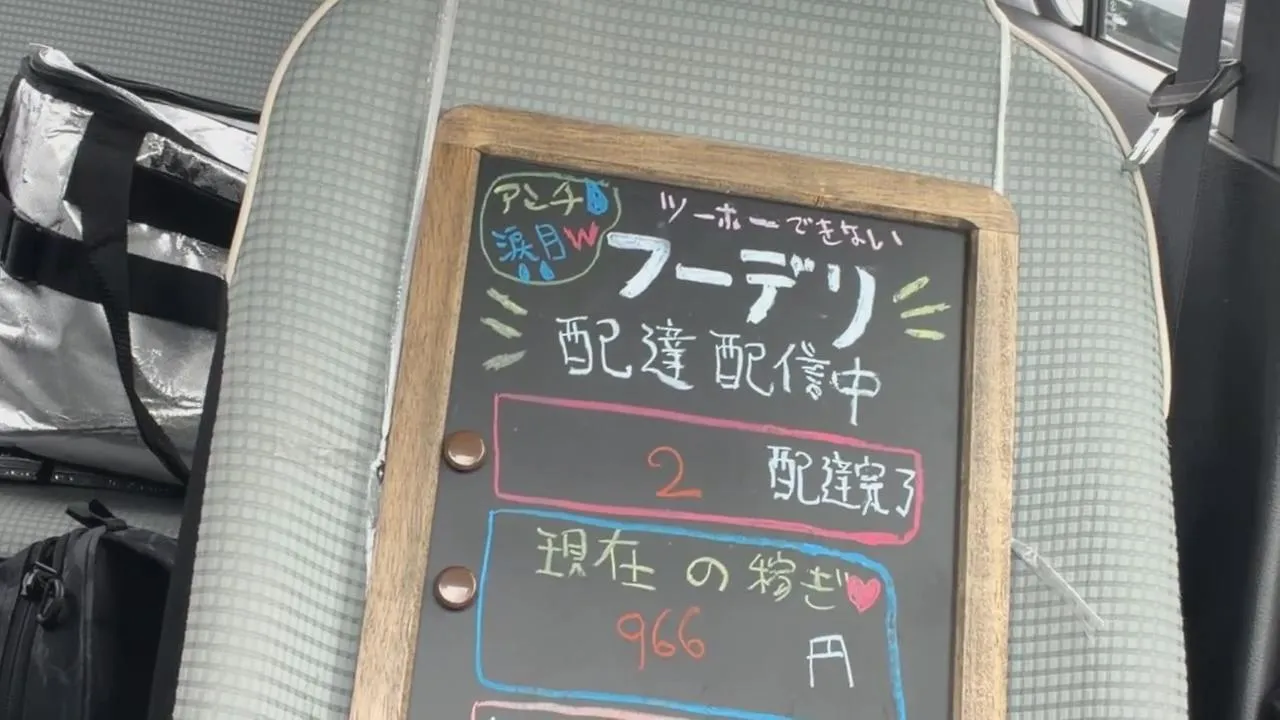 アンチD
涙月W
ツーホーできない
フーデリ
配達配信中
2 配達完了
現在の稼ぎ
966 円